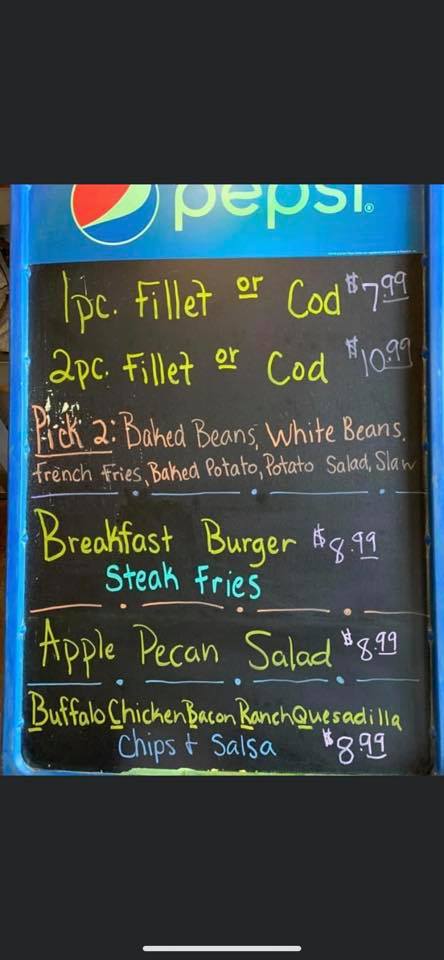 pepsi®
1pc. Fillet or Cod $7.99
2pc. Fillet or Cod $10.99
Pick 2: Baked Beans, White Beans.
French Fries, Baked Potato, Potato Salad, Slaw
Breakfast Burger $8.99
Steak Fries
Apple Pecan Salad $8.99
Buffalo Chicken Bacon Ranch Quesadilla
Chips + Salsa $8.99